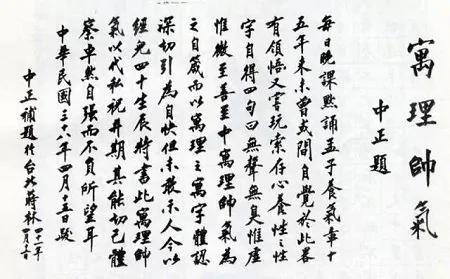 寓理帥氣
中正題
每日晚課默誦孟子養氣章十
五年來未曾或間自覺於此畧
有領悟又嘗玩索存心養性之性
字自得四句曰無聲無臭惟虛
惟微至善至中寓理帥氣為
之自箴而以寓理之寓字體認
深切引為自快但未敢示人今以
經兒四十生辰特書此寓理帥
氣以代私祝并期其能切己體
察卓然自强而不負所望耳
中華民國三十八年四月十五日
中正補題於台北蔣林
四十一年